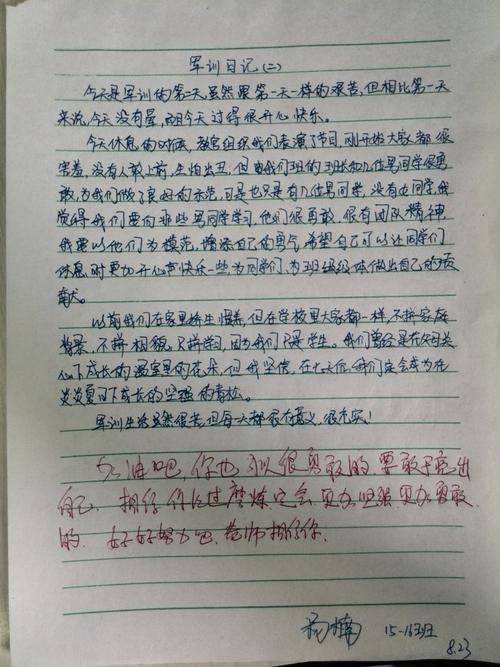 军训日记(二)
今天是军训的第二天,虽然跟第一天一样的艰苦,但相比第一天
来说,今天没有晕,而今天过得很开心快乐。
今天休息的时候,教官组织我们表演了节目,刚开始大家都很
害羞,没有人敢上前,生怕出丑,但由我们班的班长和几位男同学很勇
敢,为我们做了良好的示范,可是也只是有几位男同学,没有女同学,我
觉得我们要向那些男同学学习,他们很勇敢,很有团队精神
我要以他们为模范,增添自己的勇气,希望自己可以让同学们
休息时更加开心快乐一些,为同学们,为班级体做出自己的贡
献。
以前我们在家里娇生惯养,但在学校里大家都一样,不拼家庭
背景,不拼相貌,只拼学习,因为我们只是学生。我们曾经是在父母关
心下成长的温室里的花朵,但我坚信,在七天后,我们定会成为在
炎炎夏日下成长的坚强的青松。
军训生活虽然很苦,但每一天都很有意义,很充实!
加油吧,你也可以很勇敢的,要敢于突出
自己,相信 你的过磨炼定会更加坚强更加勇敢
的,好好努力吧,老师相信你。
楠
15-16班
8.23